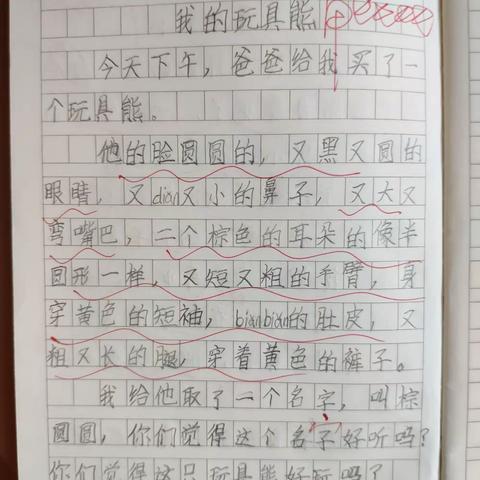 我的玩具熊
今天下午，爸爸给我买了一
个玩具熊。
他的脸圆圆的，又黑又圆的
眼睛，又diǎn又小的鼻子，又大又
弯嘴巴，二个棕色的耳朵的像半
圆形一样，又短又粗的手臂，身
穿黄色的短袖，biǎnbiǎn的肚皮，又
粗又长的腿，穿着黄色的裤子。
我给他取了一个名字，叫棕
圆圆，你们觉得这个名字好听吗？
你们觉得这只玩具熊好玩吗？